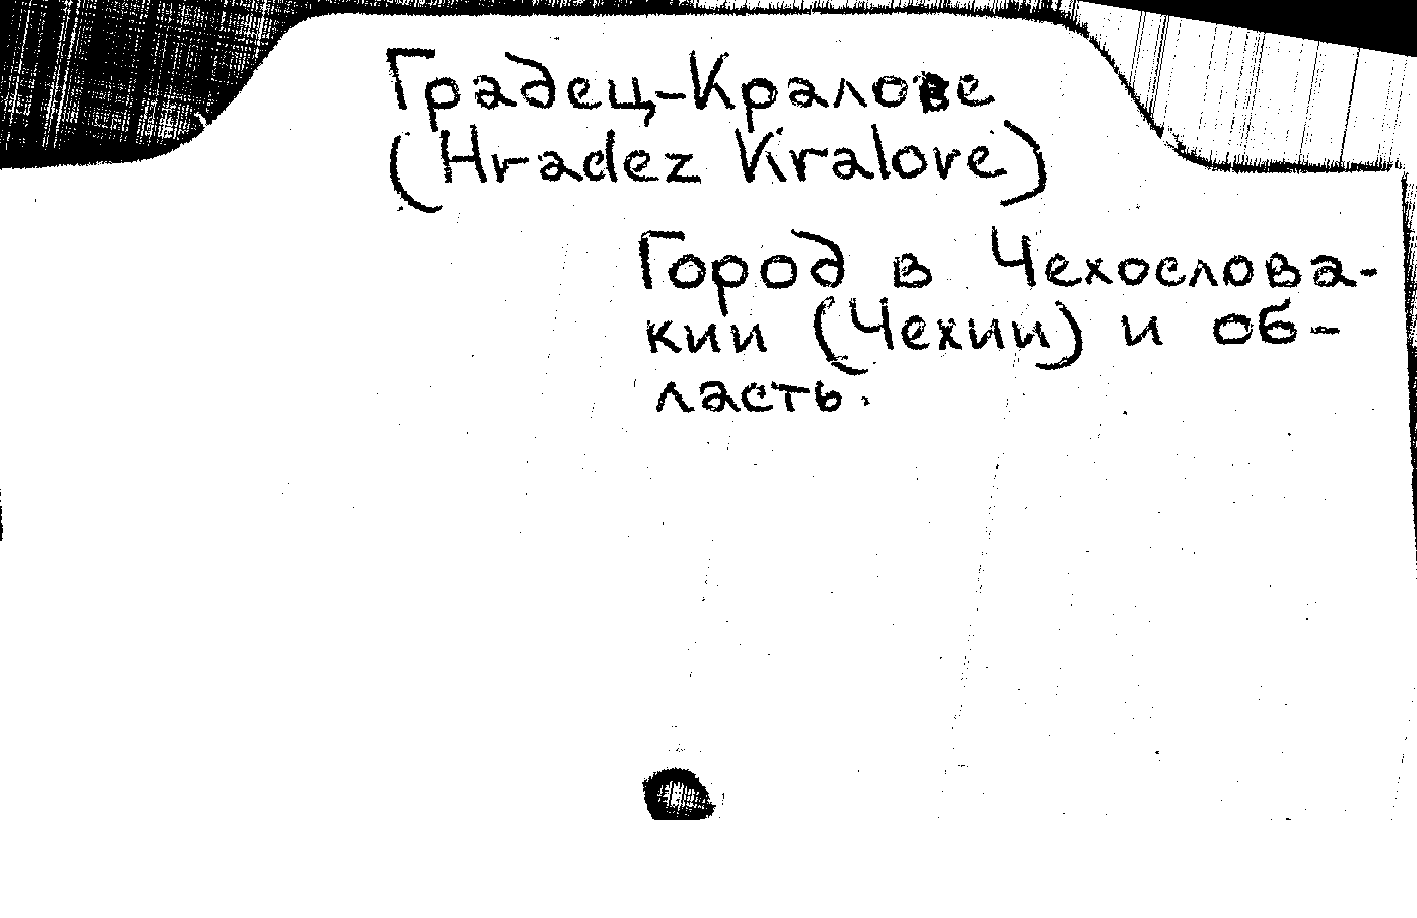 Градец-Кралове
(Hradez Kralove)
Город в Чехослова-
кии (Чехии) и об-
ласть.